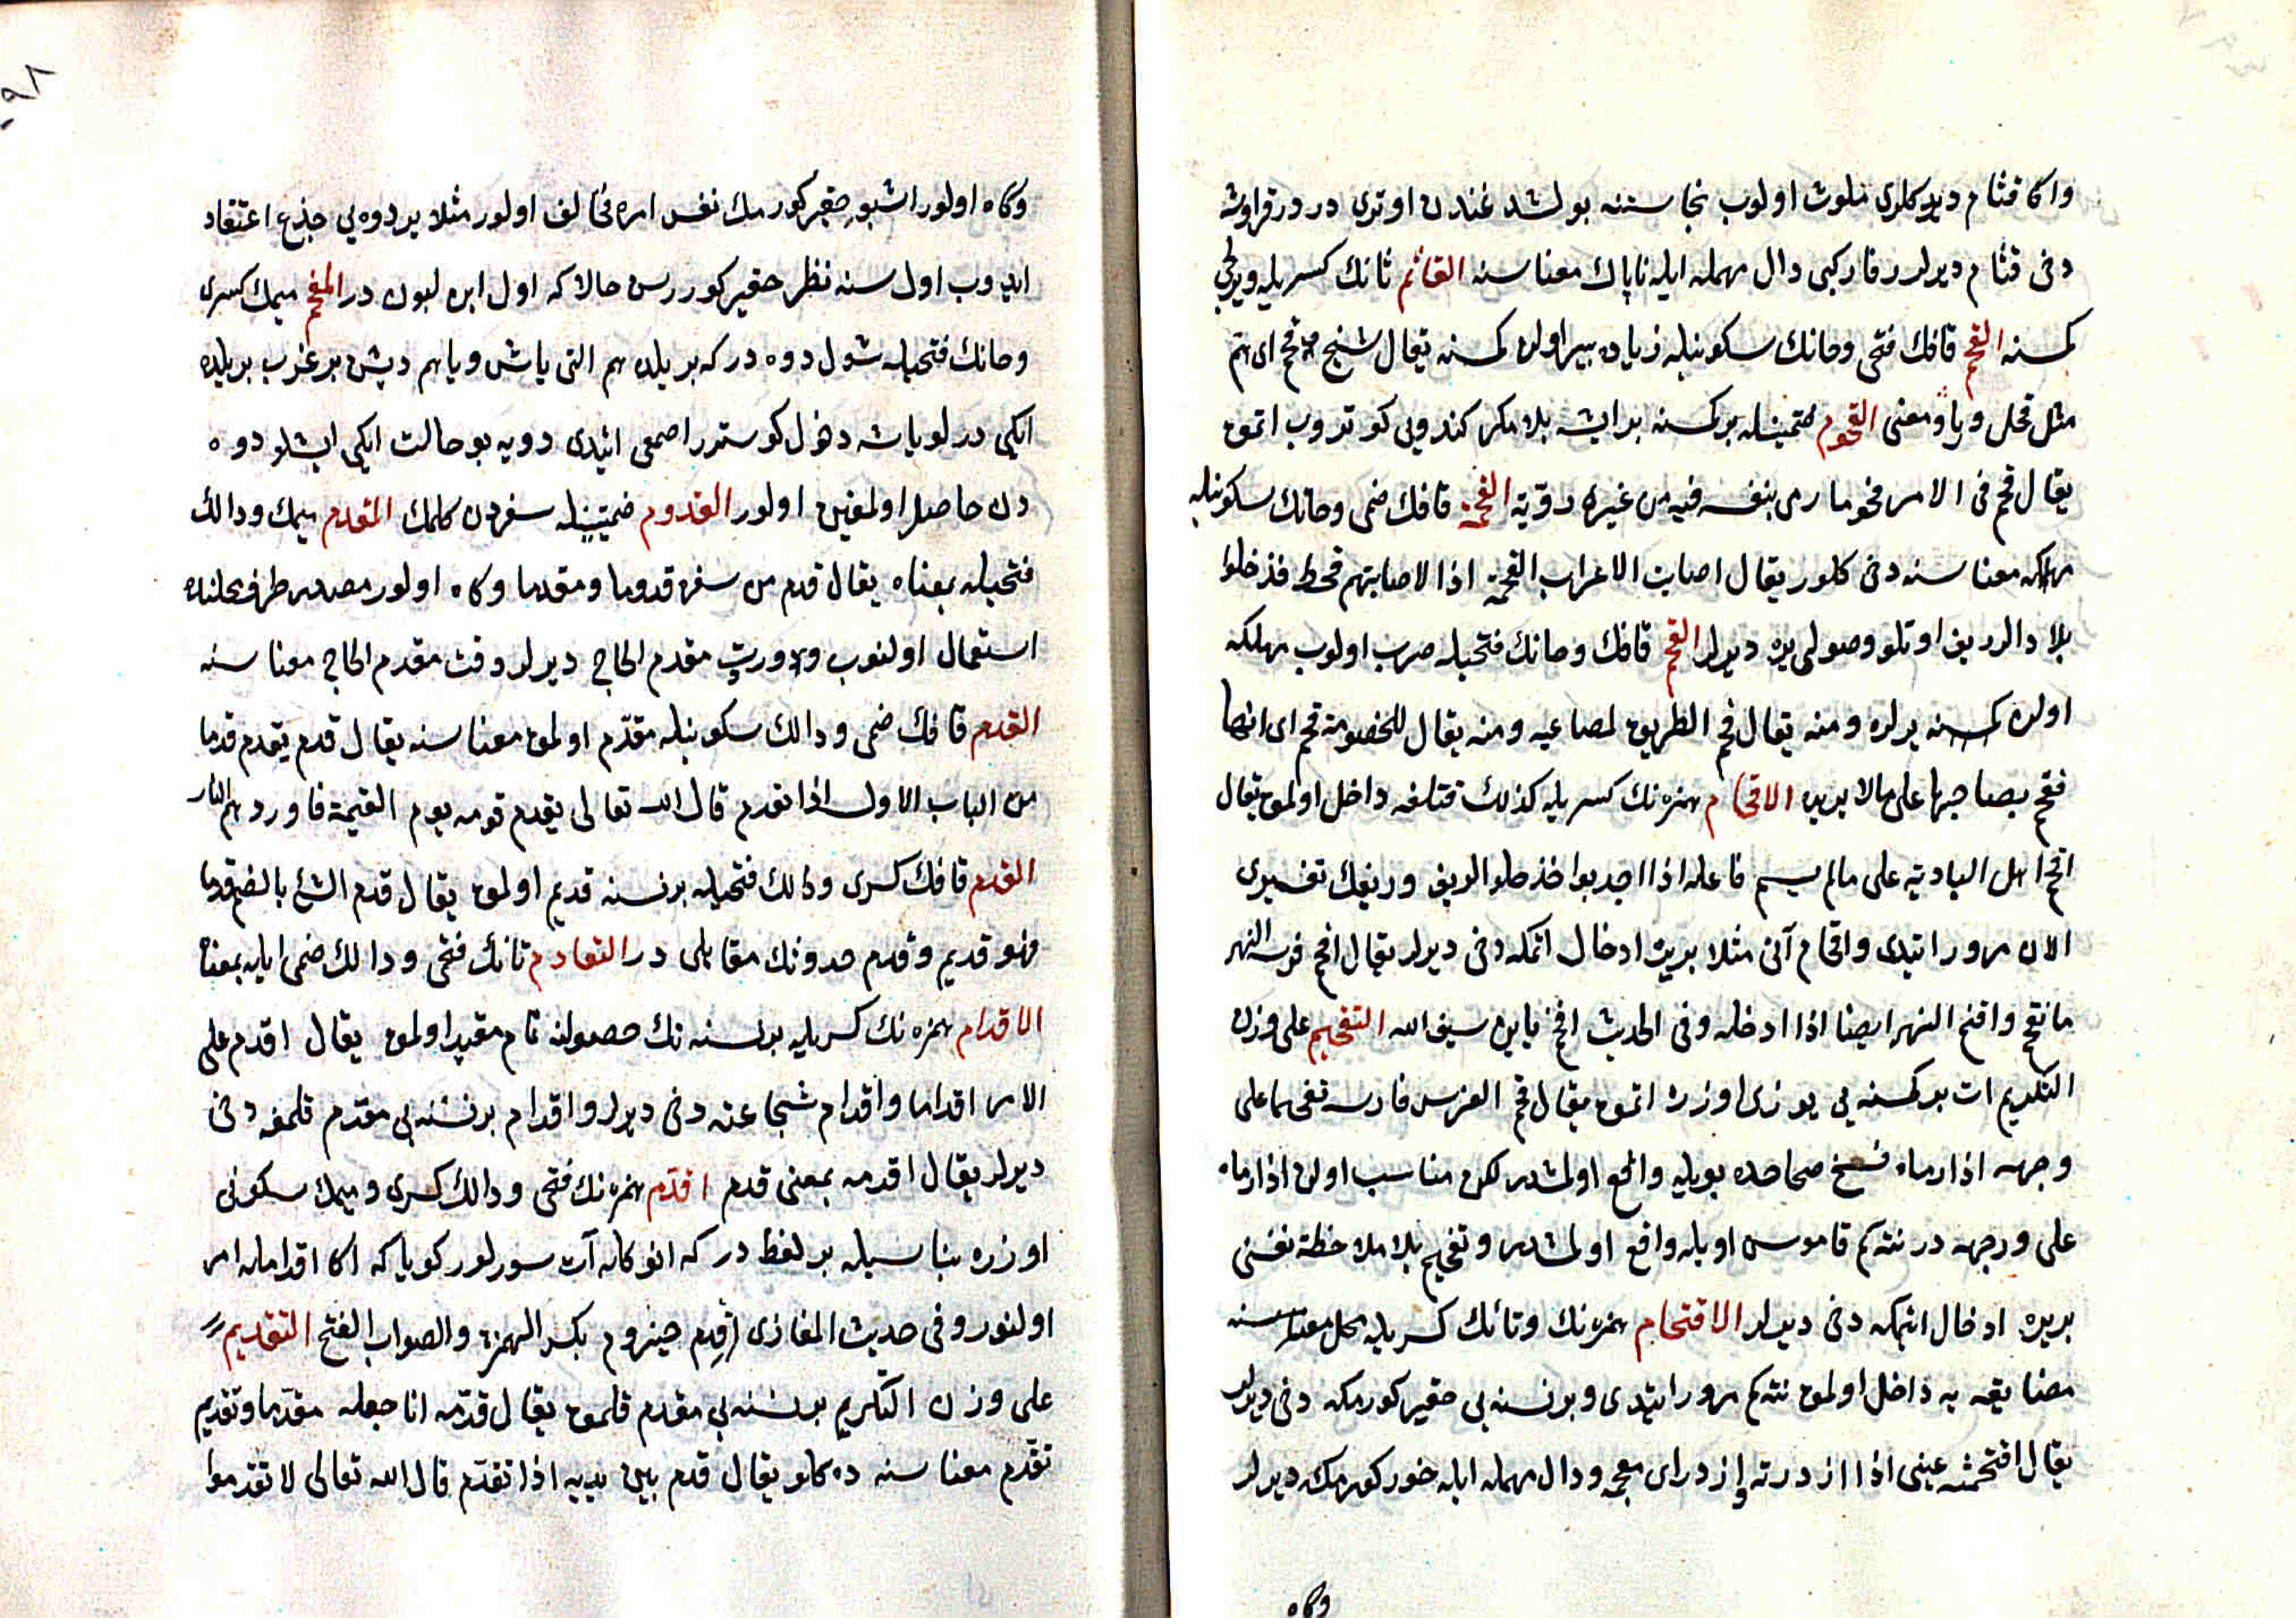 واكا قثام ديدكلرى ملوث اولوب نجاستنه بولشدغندن اوترى در درقراوشه
دخى قثام ديرلر رقار كبى دال مهمله ايله ناپاك معناسنه القاثم ثانك كسريله ويريجى
كمسنه القحم قافك فتحى وحانك سكونيله زياده پير اولان كمسنه يقال شيخ قحم اى هم
مثل قحل وياؤ معنى القحوم ضمتينله بر كمسنه بر ايشه بلا فكر كندويى كوتروب اتمق
يقال قحم فى الامر قحوما رمى بنفسه فيه من غير روية القحمة قافك ضمى وحانك سكونيله
مهلكه معناسنه دخى كلور يقال اصابت الاعراب القحمة اذا اصابتهم قحط فدخلوا
بلاد الريف اوتلو وصولى يره ديرلر القحم قافك وحانك فتحيله صرب اولوب مهلكه
اولان كسنه يرلره ومنه يقال قحم الطريق لمصاعبه ومنه يقال للخصومة قحم اى انها
تقحم بصاحبها على مالا يريده الاقحام همزه نك كسريله كذلك تكلفله داخل اولمق يقال
اقحم اهل البادية على مالم يسم فاعله اذا اجدبوا فدخلوا الريف وريفك تفسيرى
الان مرور ايتدى واقحام آتى مثلا بر يره ادخال اتمكه دخى ديرلر يقال اقحم فرسه النهر
فانقحم واقتحم النهر ايضا اذا ادخله وفى الحديث اقحم يابن سيف الله التقحيم على وزن
التكريم ات بر كمسنه يى يوزى اوزره اتمق يقال قحم الفرس فارسه تقحيما على
وجهه اذا رماه نسخ صحاحده بويله واقع اولمشدر لكن مناسب اولان اذا رماه
على وجهه در نته كم قاموس اويله واقع اولمشدر وتقحيم بلا ملاحظة نفسنى
بريره ادخال ايتمكه دخى ديرلر الاقتحام همزه نك وتانك كسريله محل معناسنه
مضايقه يه داخل اولمق نته كم مرور ايتدى وبر نسنه يى حقير كورمكه دخى ديرلر
يقال اقتحمته عينى اذا ازدرته وازدراى معجمه ودال مهمله ايله خور كورمكه ديرلر
وكاه
٩٨
وكاه اولور اشبو حقير كورمك نفس امره مخالف اولور مثلا بر دوه يى جذع اعتقاد
ايدوب اول سنه نظر حقير كوررسن حالا كه اول ابن لبون در المقحم ميمك كسرى
وحانك فتحيله شول دوه در كه بر يلده هم التى ياش وياهم ديش بر غرب بريلده
ايكى درلو ياشه دخول كوستور اصمعى ايتدى دويه بو حالت ايكى ياشلو دوه
دن حاصل اولمغين اولور القدوم ضمتينله سفردن كلمك المقدم ميمك ودالك
فتحيله بمعناه يقال قدم من سفره قدوما ومقدما وكاه اولور مصدر ظرف محلنده
استعمال اولنوب وﻻورت مقدم الحاج ديرلر وقت مقدم الحاج معناسنه
القدم قافك ضمى ودالك سكونيله مقدم اولمق معناسنه يقال قدم يقدم قدما
من الباب الاول اذا تقدم قال الله تعالى يقدم قومه يوم القيمة فاوردهم النار
القدم قافك كسرى ودالك فتحيله بر نسنه قديم اولمق يقال قدم الشئ بالضم قدما
فهو قديم وقدم حدوثك مقابلى در التقادم تانك فتحى ودالك ضمى ايله بمعناه
الاقدام همزه نك كسريله بر نسنه نك حصولنه تام مقيد اولمق يقال اقدم على
الامر اقداما واقدام شجاعته دخى ديرلر واقدام بر نسنه يى مقدم قلمغه دخى
ديرلر يقال اقدمه بمعنى قدم اقدم همزه نك فتحى ودالك كسرى وميمك سكونى
اوزره بناسيله بر لفظ در كه انوكله آت سورلور كويا كه اكا اقدامله امر
اولنور وفى حديث المغازى اقدم حيزوم بكسر الهمزة والصواب الفتح التقديم
على وزن التكريم بر نسنه يى مقدم قلمق يقال قدمه اذا جعله مقدما وتقديم
تقدم معناسنه ده كلور يقال قدم بين يديه اذا تقدم قال الله تعالى لا تقدموا